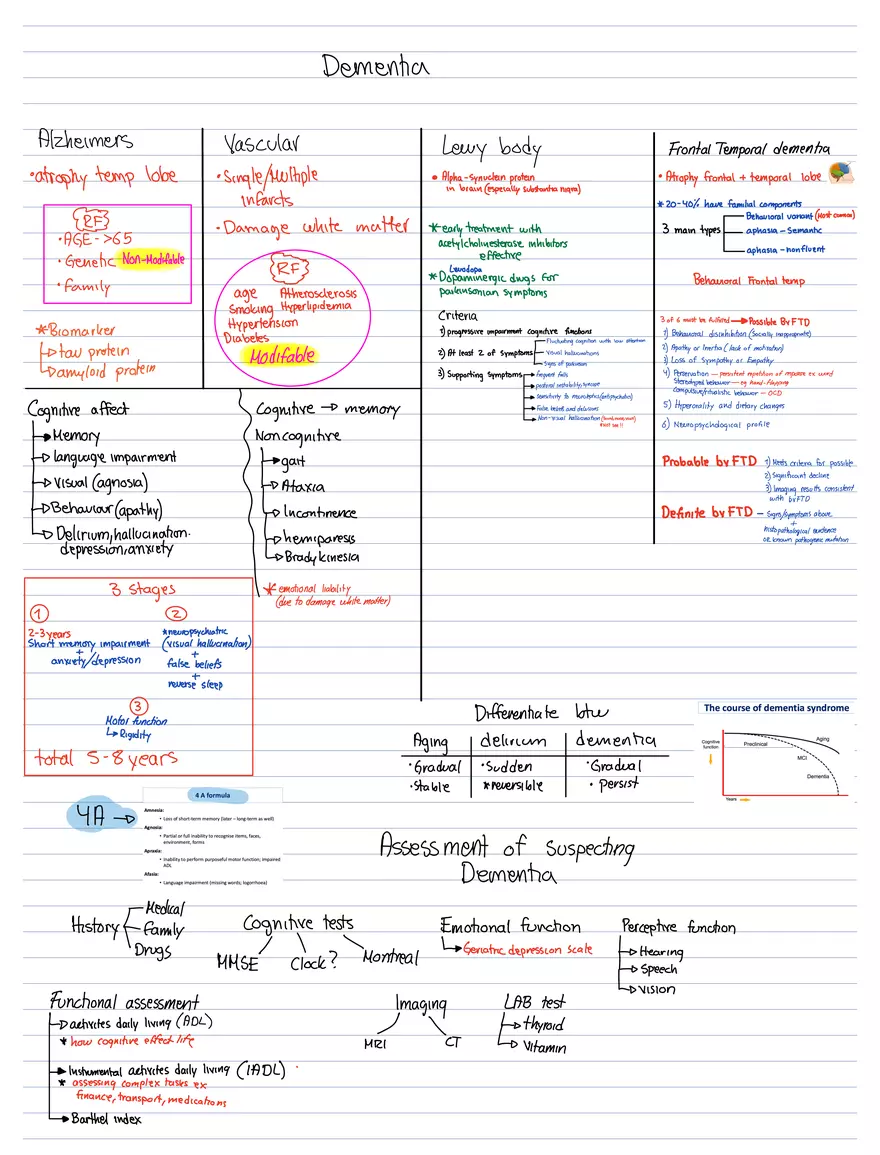 Dementia
Alzheimers
•atrophy temp lobe
RF
•AGE ->65
•Genetic Non-Modifiable
•Family
*Biomarker
tau protein
amyloid protein
Cognitive affect
Memory
language impairment
Visual (agnosia)
Behaviour (apathy)
Delirium, hallucination.
depression, anxiety
3 stages
1
2-3 years
Short memory impairment
+
anxiety/depression
2
*neuropsychiatric
(visual hallucination)
+
false beliefs
+
reverse sleep
3
Motor function
Rigidity
total 5-8 years
Vascular
•Single/Multiple
infarcts
•Damage white matter
RF
age Atherosclerosis
Smoking Hyperlipidemia
Hypertension
Diabetes
Modifable
Cognitive → memory
Non cognitive
gait
Ataxia
Incontinence
hemiparesis
Bradykinesia
*emotional liability
(due to damage white matter)
Lewy body
• Alpha-synuclein protein
in brain (especially substantia nigra)
*early treatment with
acetylcholinesterase inhibitors
effective
Levodopa
*Dopaminergic drugs for
parkinsonian symptoms
Criteria
1) progressive impairment cognitive functions
2) At least 2 of symptoms
Fluctuating cognition with low attention
Visual hallucinations
Signs of parkinson
3) Supporting symptoms
Frequent falls
postural instability, syncope
sensitivity to neuroleptics (antipsychotics)
False beliefs and delusions
Non-visual hallucination
Frontal Temporal dementia
• Atrophy frontal + temporal lobe
*20-40% have familial components
3 main types
Behavioral variant (Most common)
aphasia - semantic
aphasia - nonfluent
Behavioral Frontal temp
3 of 6 must be fulfilled → Possible BvFTD
1) Behavioral disinhibition (Socially inappropriate)
2) Apathy or Inertia (lack of motivation)
3) Loss of Sympathy or Empathy
4) Perservation - persistent repetition of response ex word
Stereotyped behavior - eg hand-flapping
Compulsive/ritualistic behavior - OCD
5) Hyperorality and dietary changes
6) Neuropsychological profile
Probable bvFTD 1) Meets criteria for possible
2) Significant decline
3) Imaging results consistent
with bvFTD
Definite bvFTD - Signs/symptoms above
+
histopathological evidence
or known pathogenic mutation
Differentiate btw
Aging delirium dementia
•Gradual •Sudden •Gradual
•Stable *reversible • Persist
The course of dementia syndrome
Cognitive
function
Preclinical
Aging
MCI
Dementia
Years
4A
4 A formula
Amnesia:
• Loss of short-term memory (later – long-term as well)
Agnosia:
• Partial or full inability to recognise items, faces,
environment, forms
Apraxia:
• Inability to perform purposeful motor function; impaired
ADL
Afasia:
• Language impairment (missing words; logorrhoea)
Assessment of suspecting
Dementia
History
Medical
Family
Drugs
Cognitive tests
MMSE
Clock?
Montreal
Emotional function
Geriatric depression scale
Perceptive function
Hearing
Speech
Vision
Functional assessment
activites daily living (ADL)
* how cognitive effect life
Instumental activites daily living (IADL)
* assessing complex tasks ex
finance, transport, medications
Barthel index
Imaging
MRI
CT
LAB test
thyroid
Vitamin